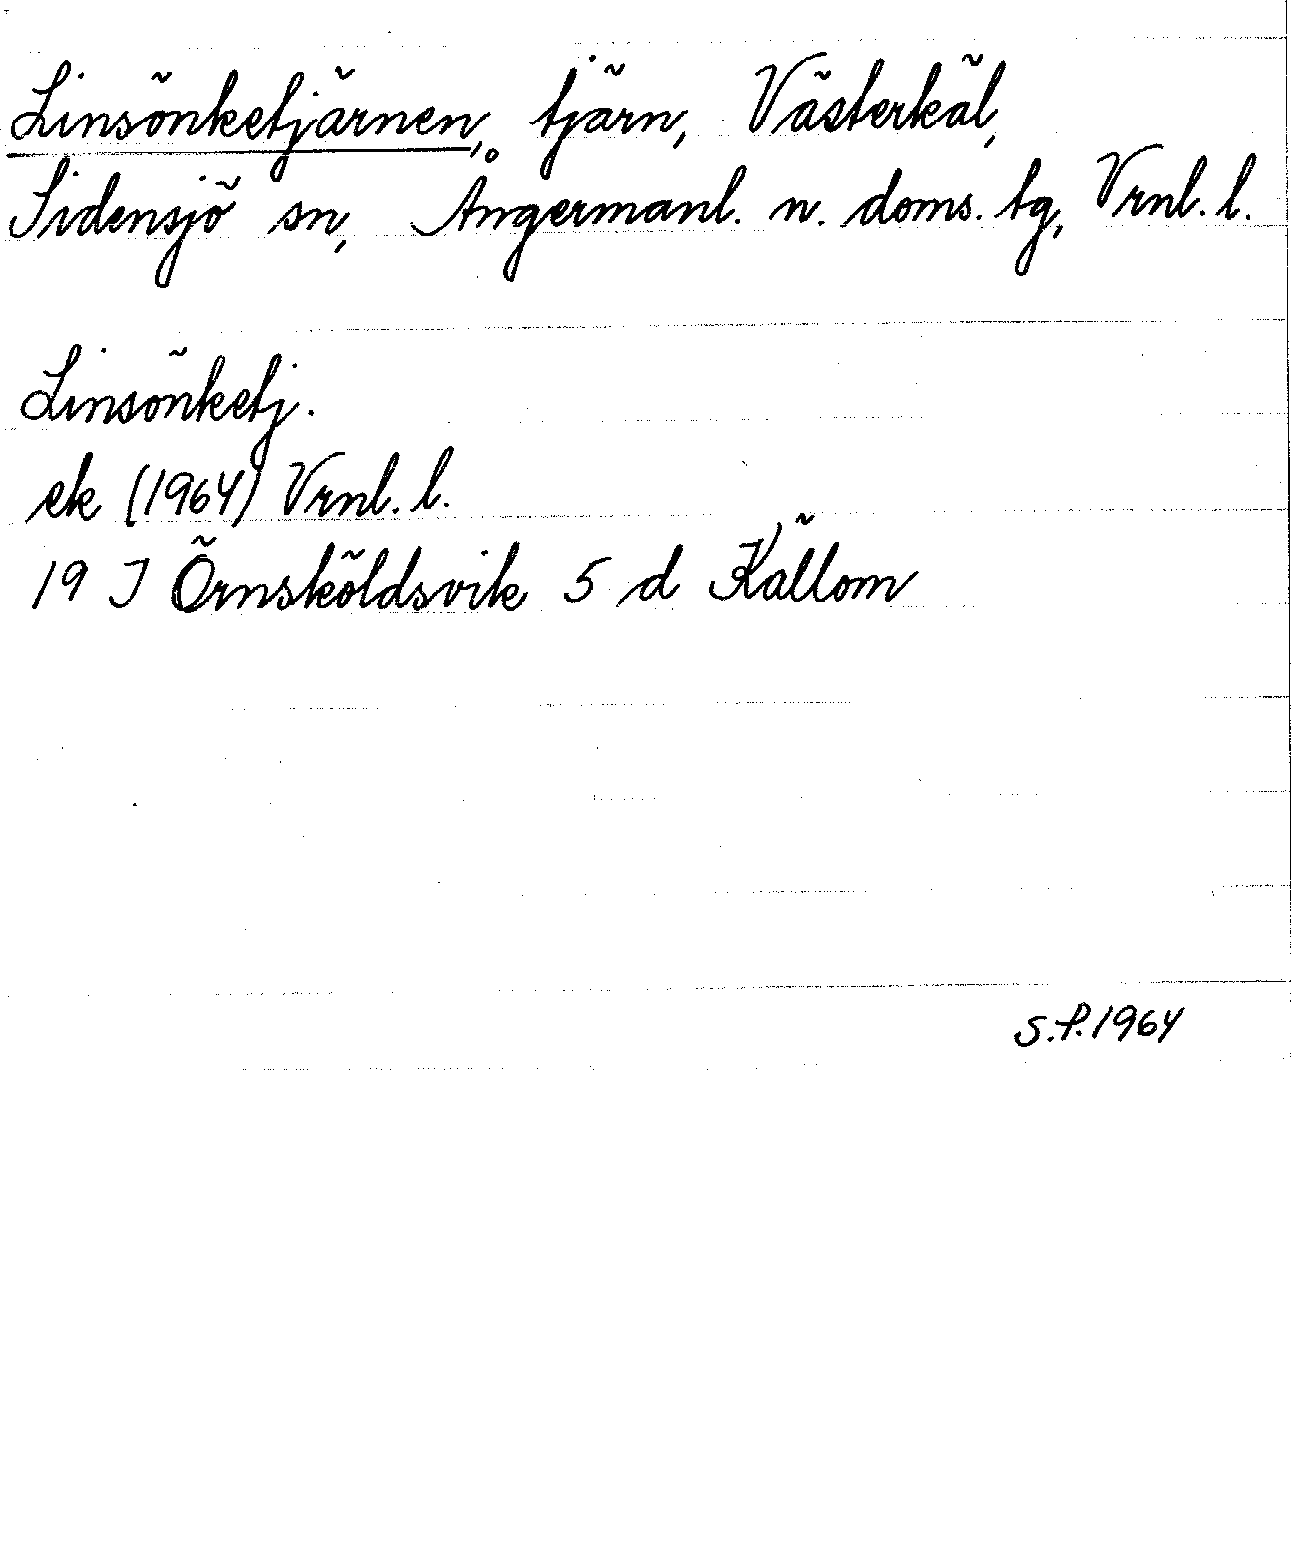 Linsönketjärnen, tjärn, Västerkäl,
Sidensjö sn, Ångermanl. n. doms. tg, Vrnl. l.
Linsönketj.
ek (1964) Vrnl. l.
19 J Örnsköldsvik 5 d Källom
S.P. 1964